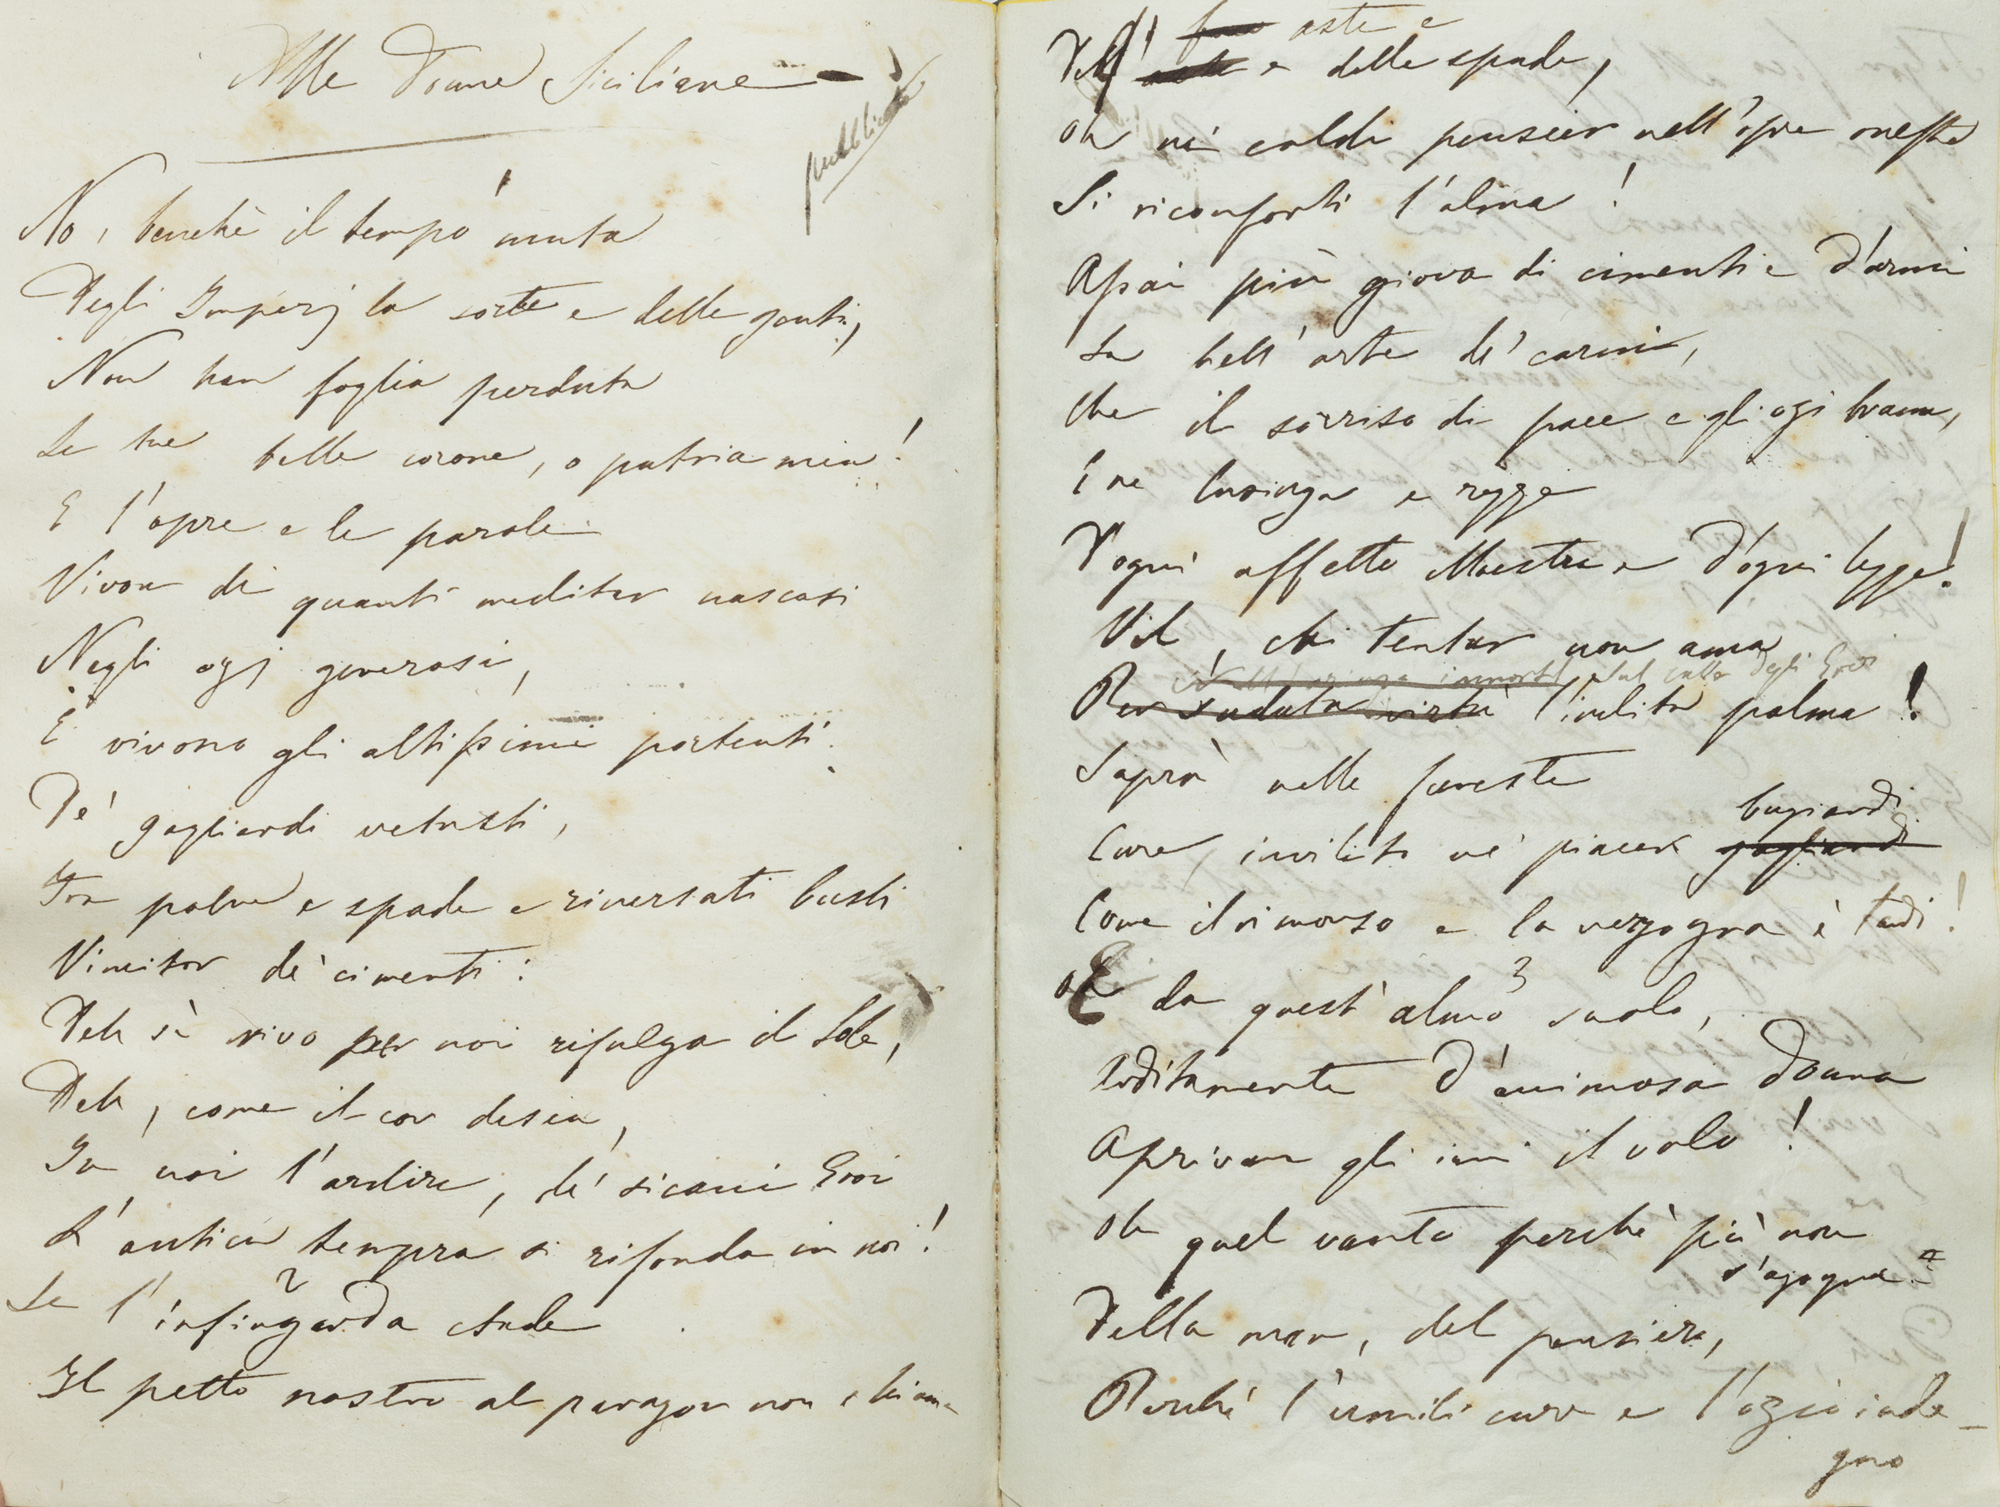 Alle Donne Siciliane
pubblicata
No, benchè il tempo muta
Degli Imperj la sorte e delle genti,
Non han foglia perduta
Le tue belle corone, o patria mia!
E l'opre e le parole
Vivon di quanti meditar nascosi
Negli ozj generosi,
E vivono gli altissimi portenti
De' gagliardi vetusti,
Fra palme e spade e riversati busti
Vincitor de' cimenti:
Deh sì vivo per noi rifulga il Sole,
Deh, come il cor desia,
In noi l'ardire, de' sicani Eroi
L'antica tempra si rifonda in noi!
Se l'infingarda etade
Il petto nostro al paragon non chiama
aste e
Dell' e delle spade,
Oh nei caldi pensier nell'opre oneste
Si riconforti l'alma!
Assai più giova di cimenti e d'armi
La bell'arte de' carmi,
Che il sorriso di pace e gli ozi brama,
E ne lusinga e regge
D'ogni affetto Maestra e d'ogni legge!
Vil, chi tentar non ama
sul calle degli Eroi
Per sudata virtù l'inclita palma!
Saprà nelle funeste
bugiardi
Cure, invilito ne' piacer gagliardi
Come il rimorso e la vergogna è tardi!
E da quest'almo suolo,
Arditamente d'animosa donna
Aprivan gli inni il volo!
Oh quel vanto perchè più non
s'agogna
Della man, del pensiero,
Perchè l'umili cure e l'ozio inde-
gno